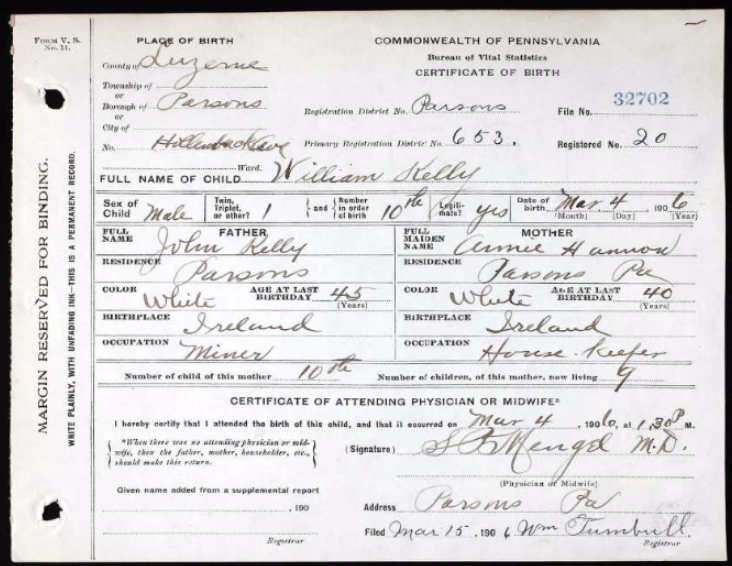 FORM V. S. No. 11.
MARGIN RESERVED FOR BINDING.
WRITE PLAINLY, WITH UNFADING INK—THIS IS A PERMANENT RECORD.
PLACE OF BIRTH
County of Luzerne
Township of
or
Borough of Parsons
or
City of
No.
Ward.
COMMONWEALTH OF PENNSYLVANIA
Bureau of Vital Statistics
CERTIFICATE OF BIRTH
Registration District No. Parsons File No. 32702
Primary Registration District No. 653. Registered No. 20
FULL NAME OF CHILD William Kelly
Sex of Child Male Twin, Triplet, or other? 1 and Number in order of birth 10th Legiti- mate? yes Date of birth Mar 4, 1906
(Month) (Day) (Year)
FATHER
FULL NAME John Kelly
RESIDENCE Parsons
COLOR White AGE AT LAST BIRTHDAY 45
(Years)
BIRTHPLACE Ireland
OCCUPATION Miner
MOTHER
FULL MAIDEN NAME Annie Hannon
RESIDENCE Parsons Pa
COLOR White AGE AT LAST BIRTHDAY 40
(Years)
BIRTHPLACE Ireland
OCCUPATION House Keeper
Number of child of this mother 10th Number of children, of this mother, now living 9
CERTIFICATE OF ATTENDING PHYSICIAN OR MIDWIFE*
I hereby certify that I attended the birth of this child, and that it occurred on Mar 4, 1906, at 1.30 P M.
*When there was no attending physician or mid-
wife, then the father, mother, householder, etc.,
should make this return.
(Signature) Mengel M.D.
(Physician or Midwife)
Given name added from a supplemental report
, 190
Registrar
Address Parsons Pa
Filed Mar 15, 1906 Wm Turnbull
Registrar